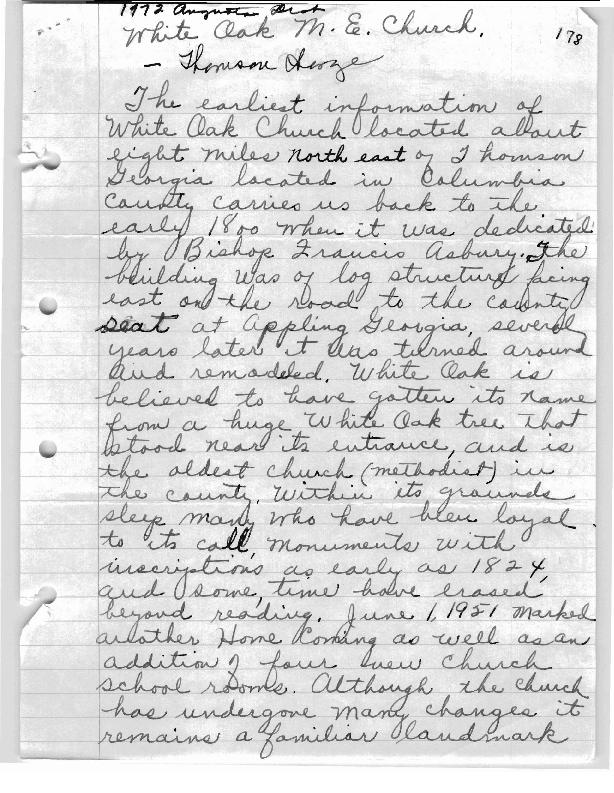 1972 Augusta Dist
White Oak M. E. Church.
178
— Thomson
The earliest information of
White Oak Church located about
eight miles North east of Thomson
Georgia located in Columbia
County carries us back to the
early 1800 when it was dedicated
by Bishop Francis Asbury. The
building was of log structure facing
east on the road to the county
seat at Appling Georgia, several
years later it was turned around
and remodeled. White Oak is
believed to have gotten its name
from a huge White Oak tree that
stood near its entrance, and is
the oldest church (methodist) in
the county. Within its grounds
sleep many who have been loyal
to its call, monuments with
inscriptions as early as 1824,
and some, time have erased
beyond reading. June 1, 1951 marked
another Home Coming as well as an
addition of four new church
school rooms. Although the church
has undergone many changes it
remains a familiar landmark